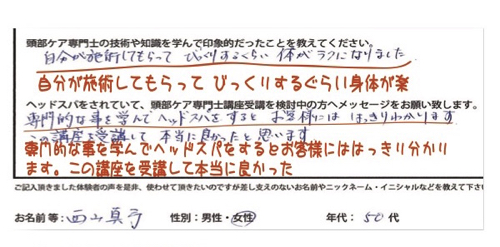 頭部ケア専門士の技術や知識を学んで印象的だったことを教えてください。
自分が施術してもらって びっくりするぐらい 体がラクになりました
自分が施術してもらって びっくりするぐらい身体が楽
ヘッドスパをされていて、頭部ケア専門士講座受講を検討中の方へメッセージをお願い致します。
専門的な事を学んでヘッドスパをすると お客様には はっきりわかります
この講座を受講して 本当に良かったと思います
専門的な事を学んでヘッドスパをするとお客様にははっきり分かり
ます。この講座を受講して本当に良かった
ご記入頂きました体験者の声を是非、使わせて頂きたいのですが差し支えのないお名前やニックネーム・イニシャルなどを教えて下さい
お名前等: 西山真弓 性別:男性・女性 年代: 50 代